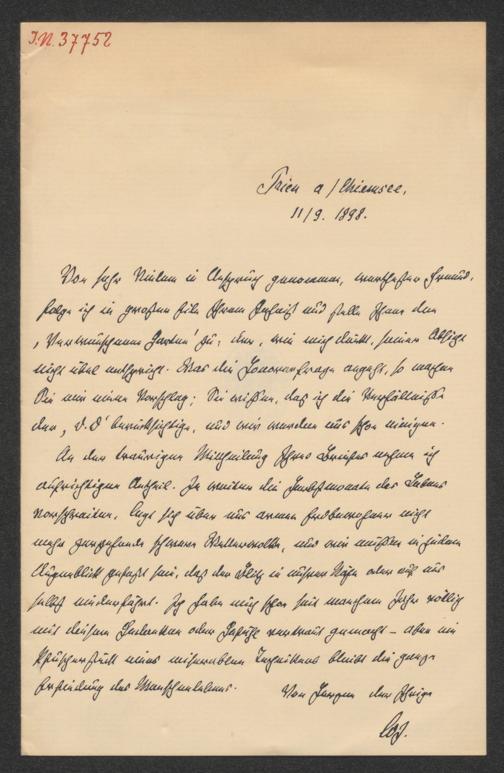 I.N. 37752
Prien a/Chiemsee,
11/9. 1898.
Von sehr Vielem in Anspruch genommen, werthester Freund,
folge ich in großer Eile Ihrem Geheiß und stelle Ihnen den
„Verwunschenen Garten“ zu: der, wie mich däucht, seiner Absicht
nicht übel entspricht. Was die Honorarfrage angeht, so machen
Sie mir einen Vorschlag; Sie wissen, daß ich die Verhältnisse
der „ berücksichtige, und wir werden uns schon einigen.
An der traurigen Mittheilung Ihres Briefes nehme ich
aufrichtigen Antheil. Je weiter die Herbstmonate des Lebens
vorschreiten, legt sich über uns armen Erdbewohner nicht
mehr schwere Wetterwolke, und wir müssen in jedem
Augenblick gefaßt sein, daß der Blitz in unserer Nähe oder auf uns
selbst niederfährt. Ich habe mich schon seit manchem Jahr völlig
mit diesem Gedanken oder Gefühl vertraut gemacht – aber ein
Pfuscherstück eines miserablen Technikers bleibt die ganze
Erfindung des Menschenlebens.
Von Herzen der Ihrige